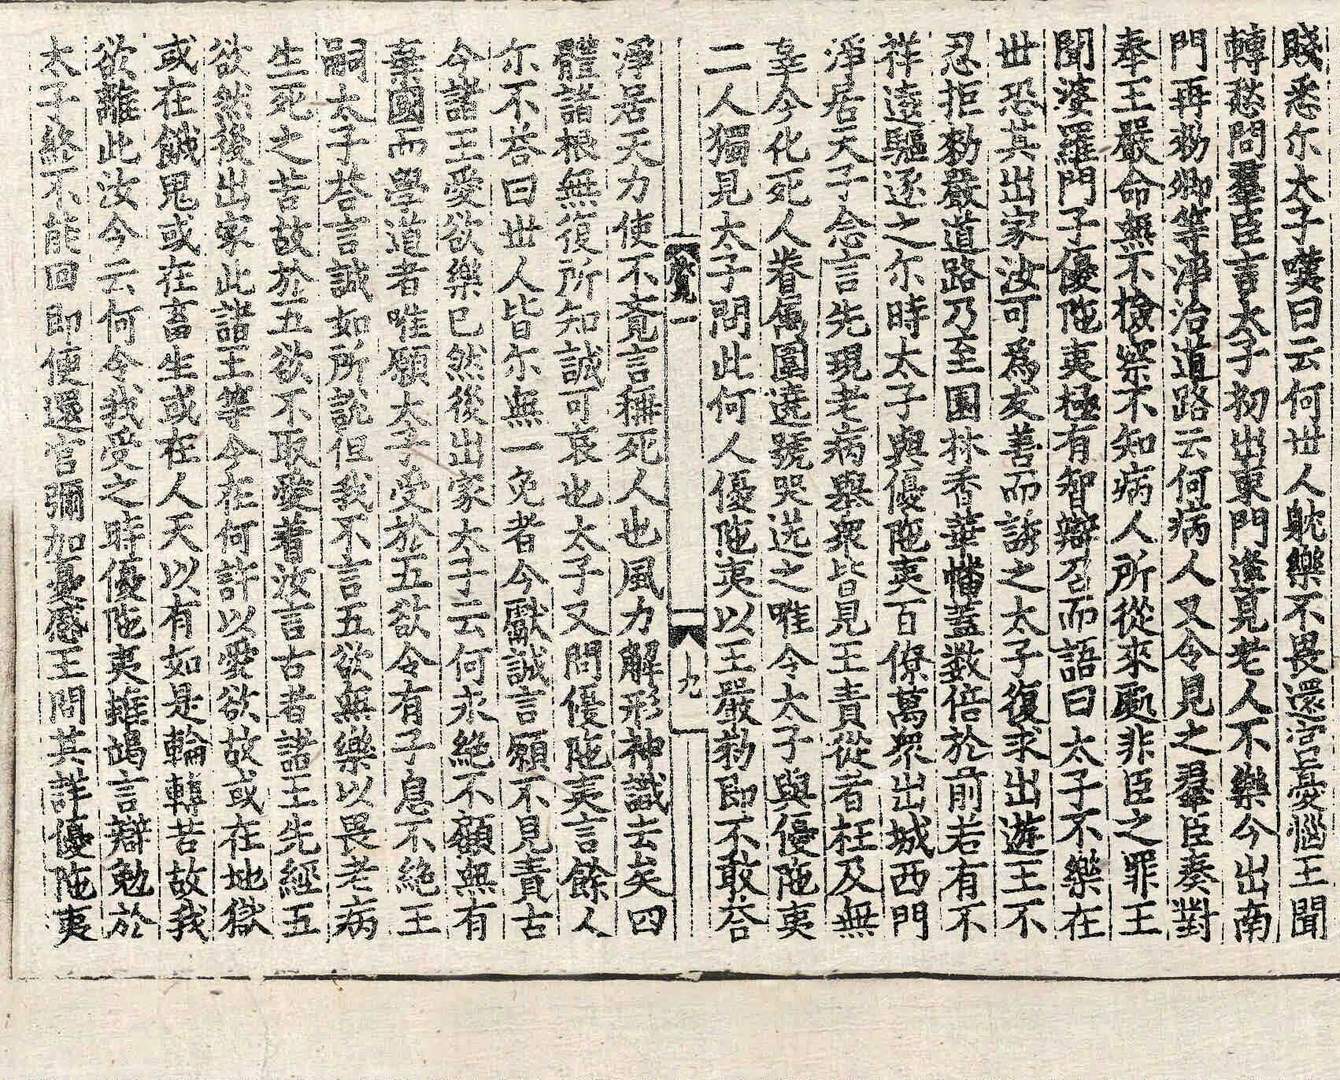 賤悉尒太子嘆曰云何世人躭樂不畏還宮憂惱王聞
轉愁問羣臣言太子初出東門逢見老人不樂今出南
門再勑卿等淨治道路云何病人又令見之羣臣奏對
奉王嚴命無不檢察不知病人所從來處非臣之罪王
聞婆羅門子優陁夷極有智辯召而語曰太子不樂在
世恐其出家汝可爲友善而誘之太子復求出遊王不
忍拒勑嚴道路乃至園林香華幡蓋数倍於前若有不
祥遠驅逐之尒時太子與優陁夷百僚萬衆出城西門
淨居天子念言先現老病舉衆皆見王責從者枉及無
辜今化死人眷属圍遶號哭送之唯令太子與優陁夷
二人獨見太子問此何人優陁夷以王嚴勑即不敢荅
覽一
九
淨居天力使不覺言稱死人也風力解形神識去矣四
體諸根無復所知誠可哀也太子又問優陁夷言餘人
尒不荅曰世人皆尒無一免者今獻誠言願不見責古
今諸王愛欲樂已然後出家太子云何永絶不顧無有
棄國而學道者唯願大子受於五欲令有子息不絶王
嗣太子荅言誠如所說但我不言五欲無樂以畏老病
生死之苦故於五欲不取愛着汝言古者諸王先經五
欲然後出家此諸王等今在何許以愛欲故或在地獄
或在餓鬼或在畜生或在人天以有如是輪轉苦故我
欲離此汝今云何令我受之時優陁夷雖竭言辯勉於
太子終不能回即便還宮彌加憂慼王問其詳優陁夷